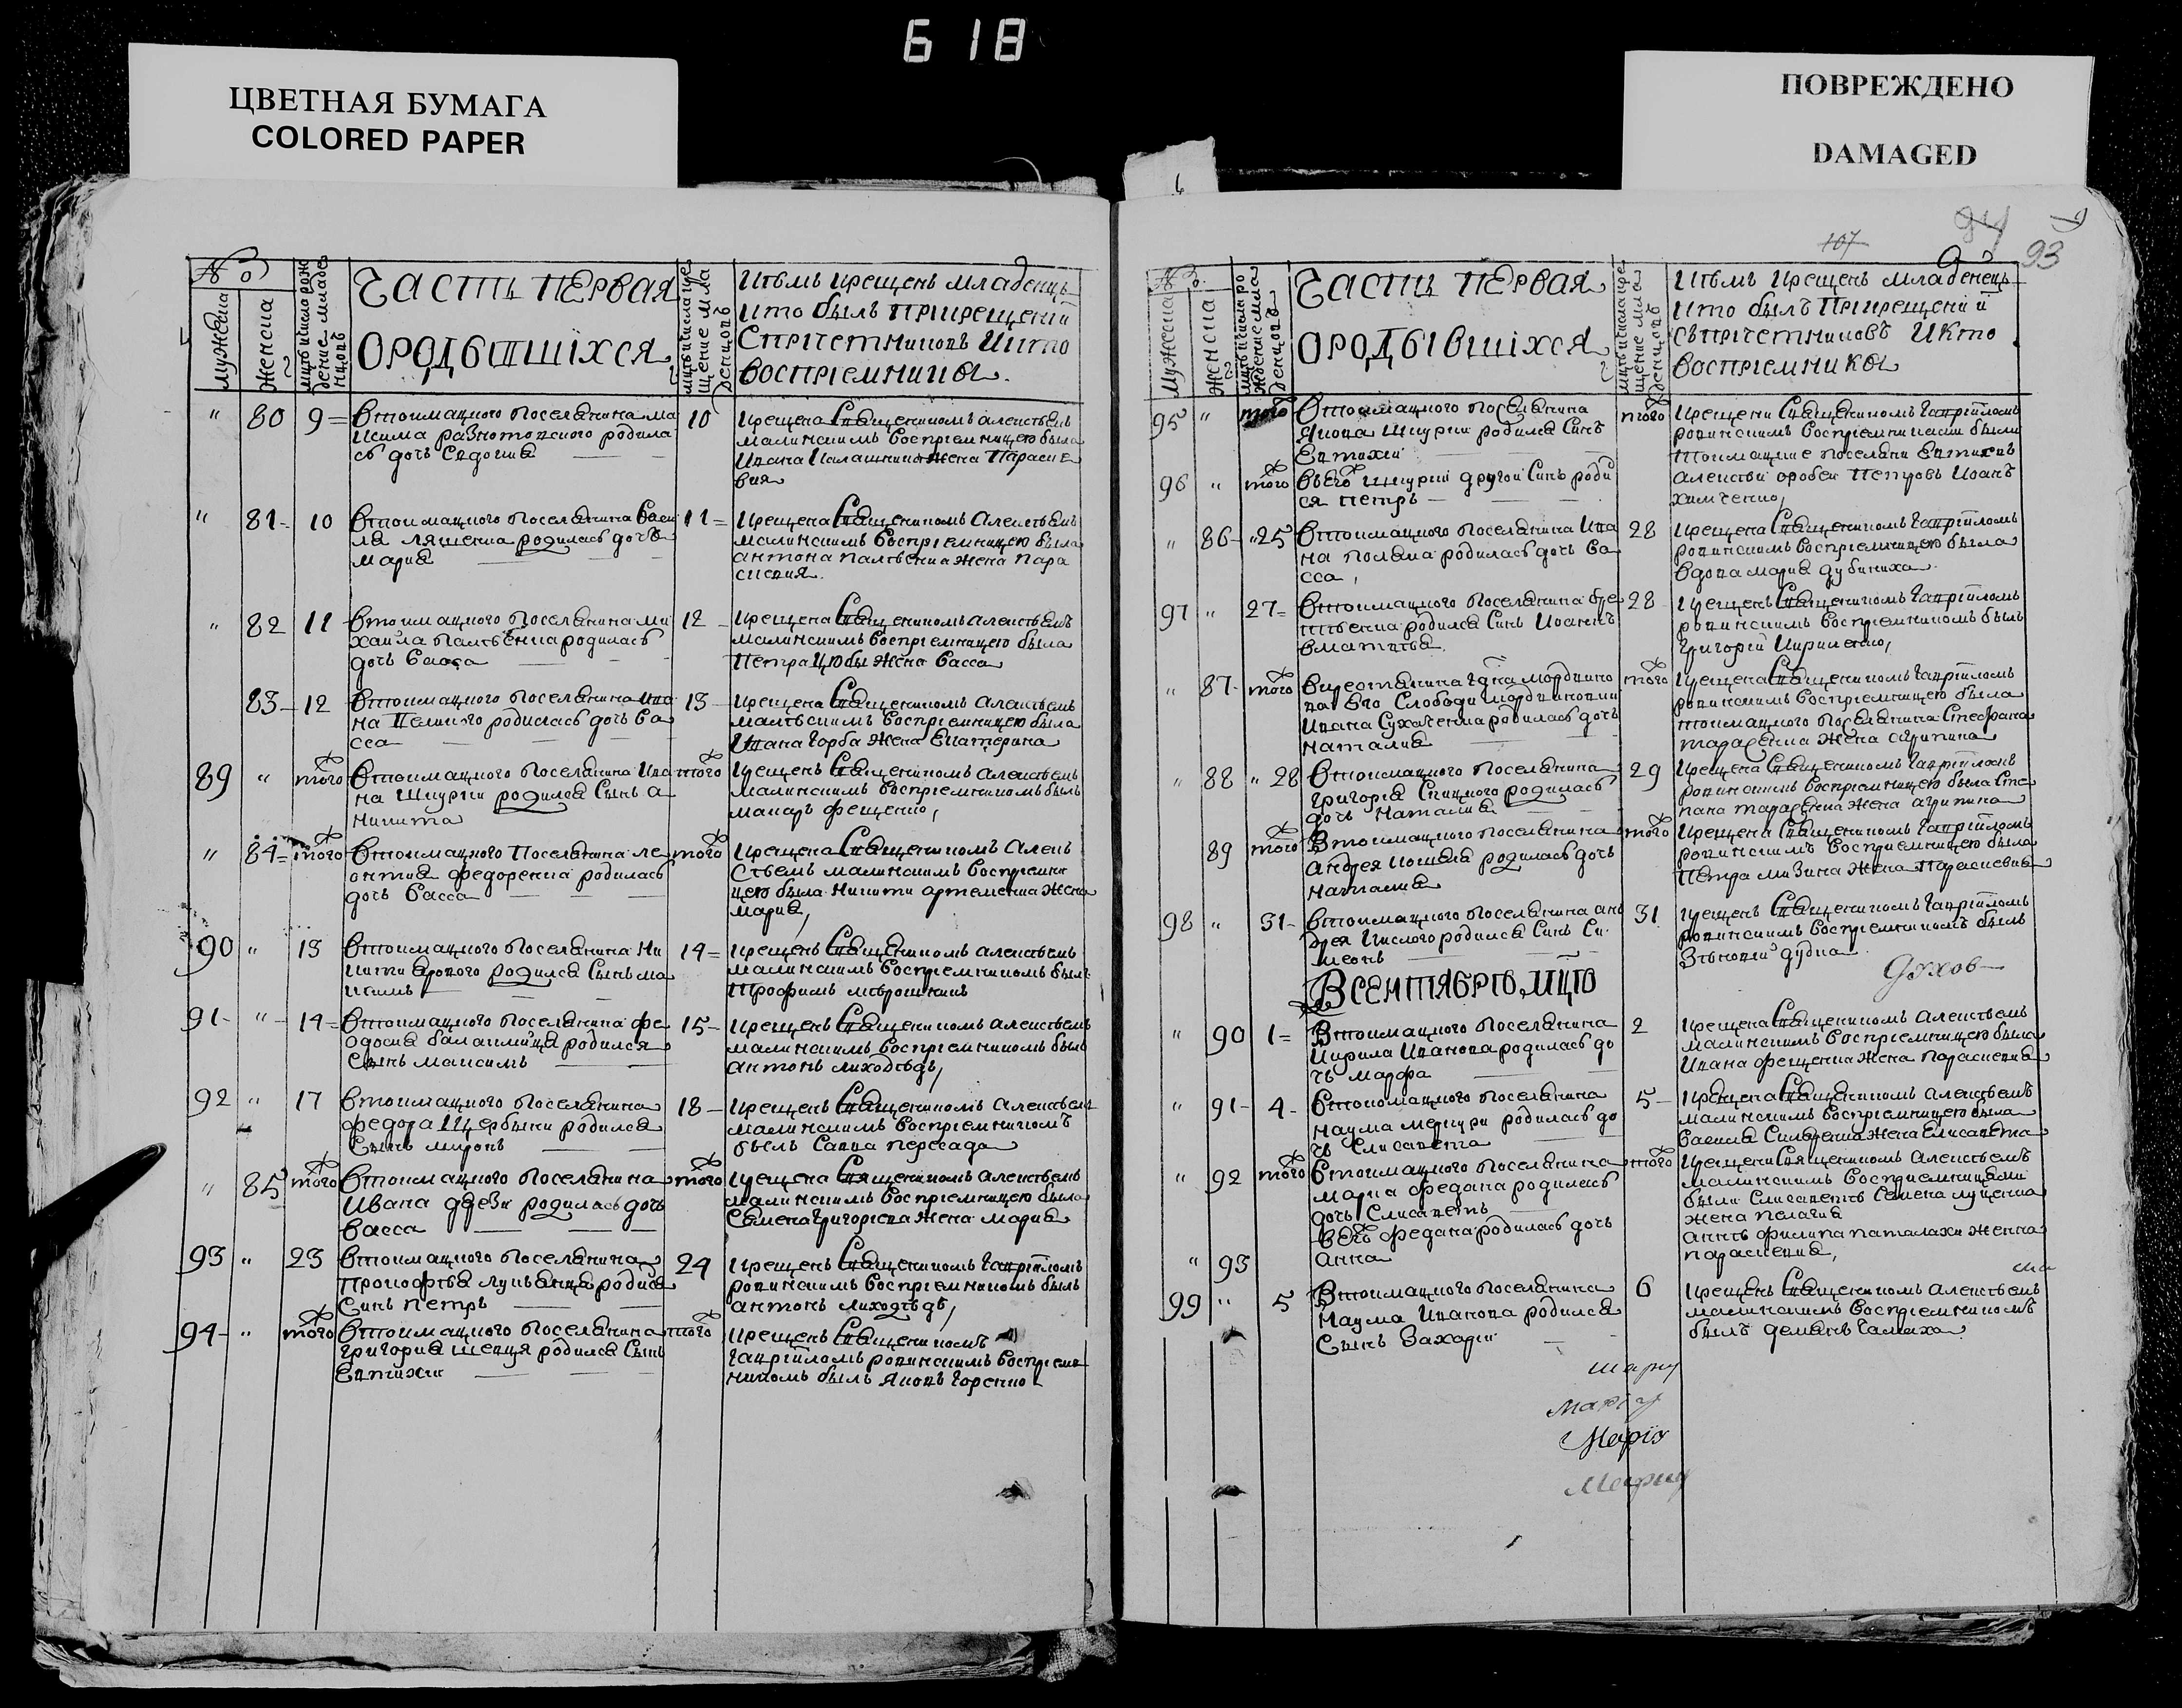 618
ЦВЕТНАЯ БУМАГА
COLORED PAPER
ПОВРЕЖДЕНО
DAMAGED
107
93
№
мужеска
женска
ЧАСТЬ ПЕРВАЯ
О РОДЫВШІХСЯ
Кѣмъ крещенъ младенцъ
и кто былъ при крещеніи
с причетниковъ и кто
воспріемники
" 80 9 Втокмацкого поселянина ма
ксима разнотовского родила
сь дочь Евдокия
10 крещена священикомъ алексѣемъ
малинскимъ воспріемницею была
Ивана Калашника жена Параске
вия
" 81 10 Втокмацкого поселянина Васи
ла ляшенка родилась дочъ
мария
11 крещена священикомъ алексѣемъ
малинскимъ воспріемницею была
антона палѣенка жена пара
скевия
" 82 11 Втокмацкого поселянина ми
хайла палѣенка родилась
дочь васса
12 крещена священикомъ алексѣемъ
малинскимъ воспріемницею была
Петра Цюбы жена васса
83 12 Втокмацкого поселянина Ива
на Великого родилась дочь ва
сса
13 крещена священикомъ алексѣемъ
малѣнскимъ воспріемницею была
Ивана Горба жена Екатерина
89 " того Втокмацкого поселянина Ива
на Шкурки родился сынъ
никита
того крещенъ священикомъ алексѣемъ
малинскимъ воспріемникомъ былъ
макаръ фещенко
" 84 того Втокмацкого поселянина ле
онтия федоренка родилась
дочь васса
того крещена священикомъ алекъ
сѣемъ малинскимъ воспріемни
цею была никити артеменка жена
мария
90 " 13 Втокмацкого поселянина ни
кити ярового родился сынъ ма
кимъ
14 крещенъ священикомъ алексѣемъ
малинскимъ воспріемникомъ былъ
Трофимъ
91 " 14 Втокмацкого поселянина фе
одосия балаклийца родился
сынъ максимъ
15 крещенъ священикомъ алексѣемъ
малинскимъ воспріемникомъ былъ
антонъ лиходѣдъ
92 " 17 Втокмацкого поселянина
федора Щербыни родился
сынъ миронъ
18 крещенъ священикомъ алексѣемъ
малинскимъ воспріемникомъ
былъ Савва пересада
" 85 того Втокмацкого поселянина
Ивана родилась дочь
васса
того крещена священикомъ алексѣемъ
малинскимъ воспріемницею была
Семена Григориева жена мария
93 " 23 Втокмацкого поселянина
Прокофѣя лукьянца родился
синъ петръ
24 крещенъ священикомъ гаврііломъ
ровинскимъ воспріемникомъ былъ
антонъ лиходѣдъ
94 " того Втокмацкого поселянина
григория шевця родился сынъ
Евтихии
того крещенъ священикомъ
гаврііломъ ровинскимъ воспріем
никомъ былъ яковъ горенко
№
мужеска
женска
ЧАСТЬ ПЕРВАЯ
О РОДЫВШІХСЯ
Кѣмъ крещенъ младенецъ
и кто былъ при крещеніи
съ причетниковъ и кто
воспріемники
95 " того Втокмацкого поселянина
Якова шкурки родился синъ
Евтихии
96 " того въ его шкурки другой синъ роди
ся петръ
того крещени священикомъ гаврііломъ
ровинскимъ воспріемниками были
токмацкие поселяни
алексѣй оробей Петровъ Иоанъ
химченко
" 86 25 Втокмацкого поселянина Ива
на родилась дочь ва
сса
28 крещена священикомъ гаврііломъ
ровинскимъ воспріемницею была
вдова мария дубиниха
97 " 27 Втокмацкого поселянина
родился синъ Иоаннъ
28 крещенъ священикомъ гаврііломъ
ровинскимъ воспріемникомъ былъ
григорій Кириленко
" 87 того мордвино
ва его слободи мордвиновки
Ивана Сухаченка родилась дочь
наталия
того крещена священикомъ гаврііломъ
ровинскимъ воспріемницею была
токмацкого поселянина стефана
тарасенка жена агрипина
" 88 28 Втокмацкого поселянина
григория родилась
дочь наталия
29 крещена священикомъ гаврііломъ
ровинскимъ воспріемницею была сте
пана тарасенка жена агрипина
89 того Втокмацкого поселянина
андрея кошеля родилась дочь
наталия
того крещена священикомъ гаврііломъ
ровинскимъ воспріемницею была
Петра мизина жена Параскевия
98 " 31 Втокмацкого поселянина ан
дрея Кислого родился синъ си
меонъ
31 крещенъ священикомъ гаврііломъ
ровинскимъ воспріемникомъ былъ
Зѣновий дубка
Духов
В СЕНТЯБРЮ МЦЮ
" 90 1 Втокмацкого поселянина
Кирила Иванова родилась до
чъ марфа
2 крещена священикомъ алексѣемъ
малинскимъ воспріемницею была
Ивана фещенка жена параскевия
" 91 4 Втокмацкого поселянина
наума меркури родилась до
чъ Елисавета
5 крещена священикомъ алексѣемъ
малинскимъ воспріемницею была
василя жена Елисавета
" 92 того Втокмацкого поселянина
марка федана родилась
дочь Елисаветъ
" 93 въ его федана родилась дочь
анна
того крещени священикомъ алексѣемъ
малинскимъ восприемницами
были Елисаветъ семена луценка
жена пелагия
аннѣ филипа паталахи женка
параскевия
99 " 5 Втокмацкого поселянина
Наума Иванова родился
сынъ Захарии
6 крещенъ священикомъ алексѣемъ
малинскимъ воспріемникомъ
былъ демянъ гамаха
Марія
Марія